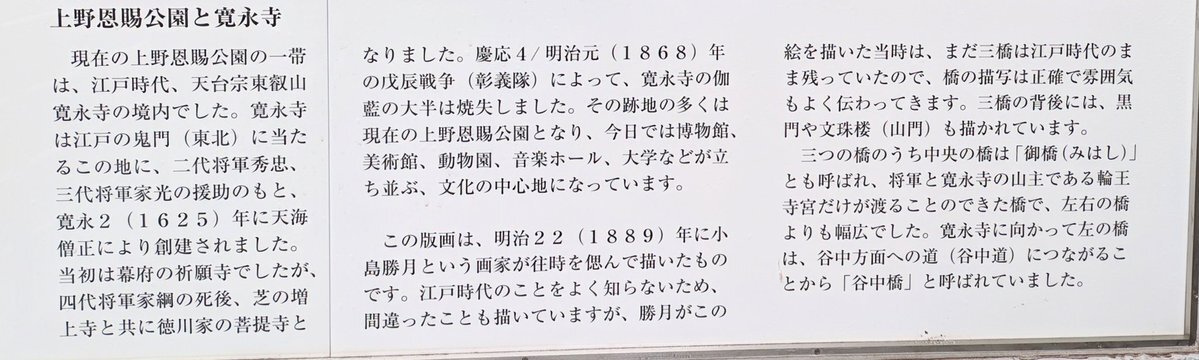 上野恩賜公園と寛永寺
　現在の上野恩賜公園の一帯
は、江戸時代、天台宗東叡山
寛永寺の境内でした。寛永寺
は江戸の鬼門（東北）に当た
るこの地に、二代将軍秀忠、
三代将軍家光の援助のもと、
寛永２（１６２５）年に天海
僧正により創建されました。
当初は幕府の祈願寺でしたが、
四代将軍家綱の死後、芝の増
上寺と共に徳川家の菩提寺と
なりました。慶応４/明治元（１８６８）年
の戊辰戦争（彰義隊）によって、寛永寺の伽
藍の大半は焼失しました。その跡地の多くは
現在の上野恩賜公園となり、今日では博物館、
美術館、動物園、音楽ホール、大学などが立
ち並ぶ、文化の中心地になっています。
　この版画は、明治２２（１８８９）年に小
島勝月という画家が往時を偲んで描いたもの
です。江戸時代のことをよく知らないため、
間違ったことも描いていますが、勝月がこの
絵を描いた当時は、まだ三橋は江戸時代のま
ま残っていたので、橋の描写は正確で雰囲気
もよく伝わってきます。三橋の背後には、黒
門や文珠楼（山門）も描かれています。
　三つの橋のうち中央の橋は「御橋（みはし）」
とも呼ばれ、将軍と寛永寺の山主である輪王
寺宮だけが渡ることのできた橋で、左右の橋
よりも幅広でした。寛永寺に向かって左の橋
は、谷中方面への道（谷中道）につながるこ
とから「谷中橋」と呼ばれていました。